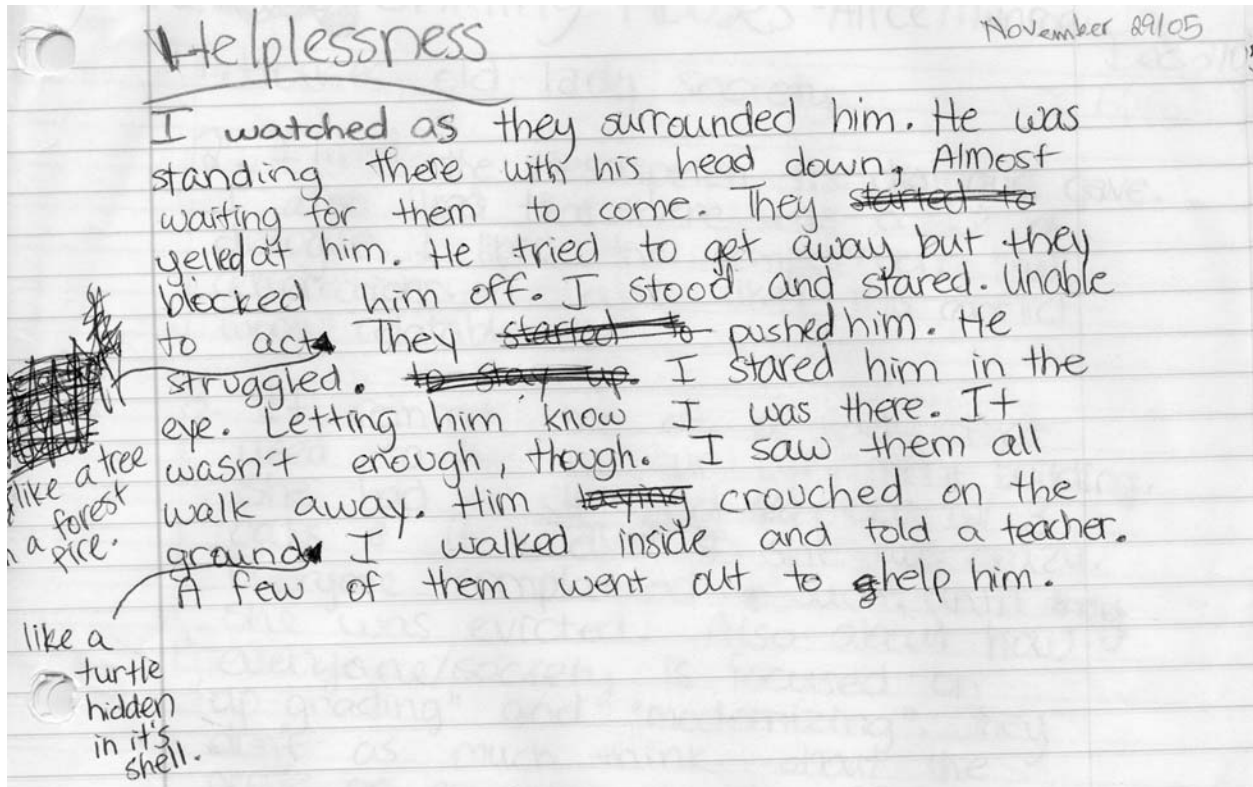 Helplessness
November 29/05
I watched as they surrounded him. He was
standing there with his head down, Almost
waiting for them to come. They started to
yelled at him. He tried to get away but they
blocked him off. I stood and stared. Unable
to act They started to pushed him. He
struggled. to stay up. I stared him in the
eye. Letting him know I was there. It
wasn't enough, though. I saw them all
walk away. Him laying crouched on the
ground I walked inside and told a teacher.
A few of them went out to help him.
like a tree
a forest
fire.
like a
turtle
hidden
in it's
shell.